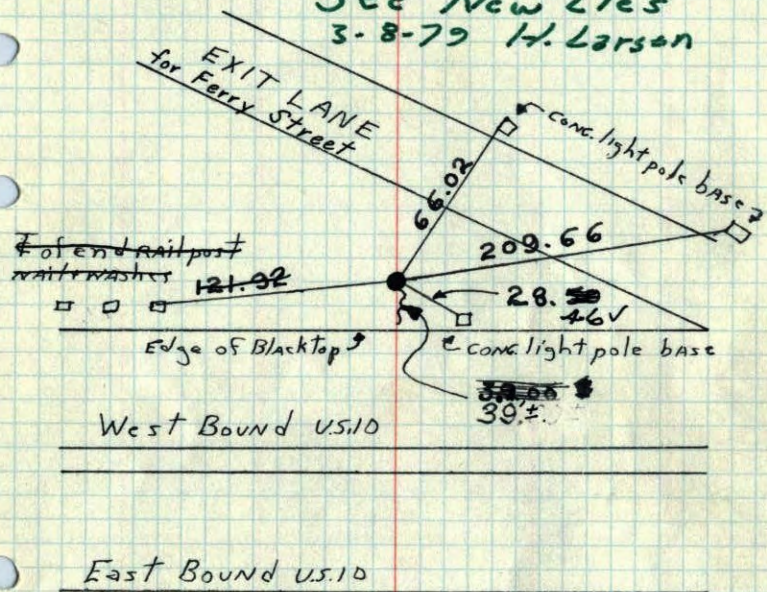 See New Ties
3-8-79 H. Larson
EXIT LANE
for Ferry Street
conc. light pole base
66.02
209.66
℄ of end RAil post
NAil & WAsher
121.92
28.
46 ✓
Edge of BlAcktop
℄ conc. light pole bAse
39.±
West Bound U.S.10
EAst Bound U.S.10